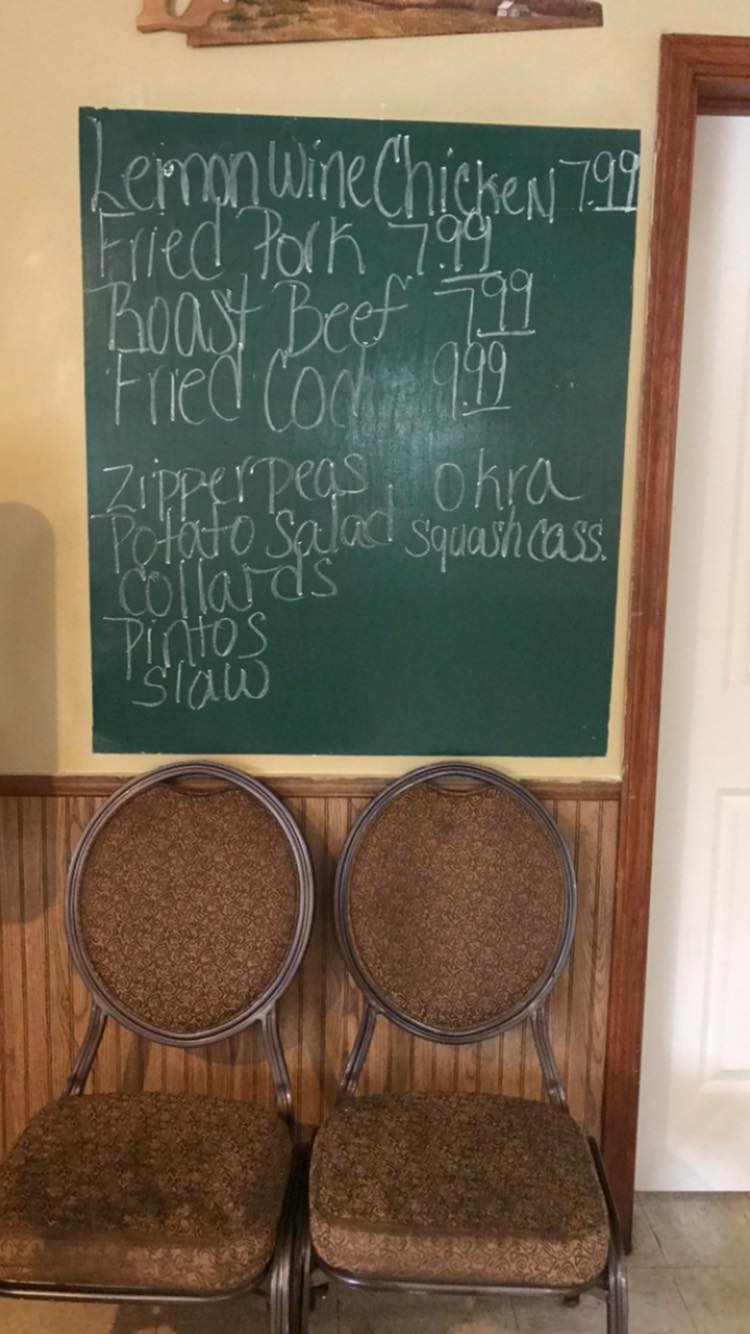 Lemon Wine Chicken 7.99
Fried Pork 7.99
Roast Beef 7.99
Fried Cod 9.99
Zipper peas okra
Potato Salad squash cass.
collards
Pintos
slaw